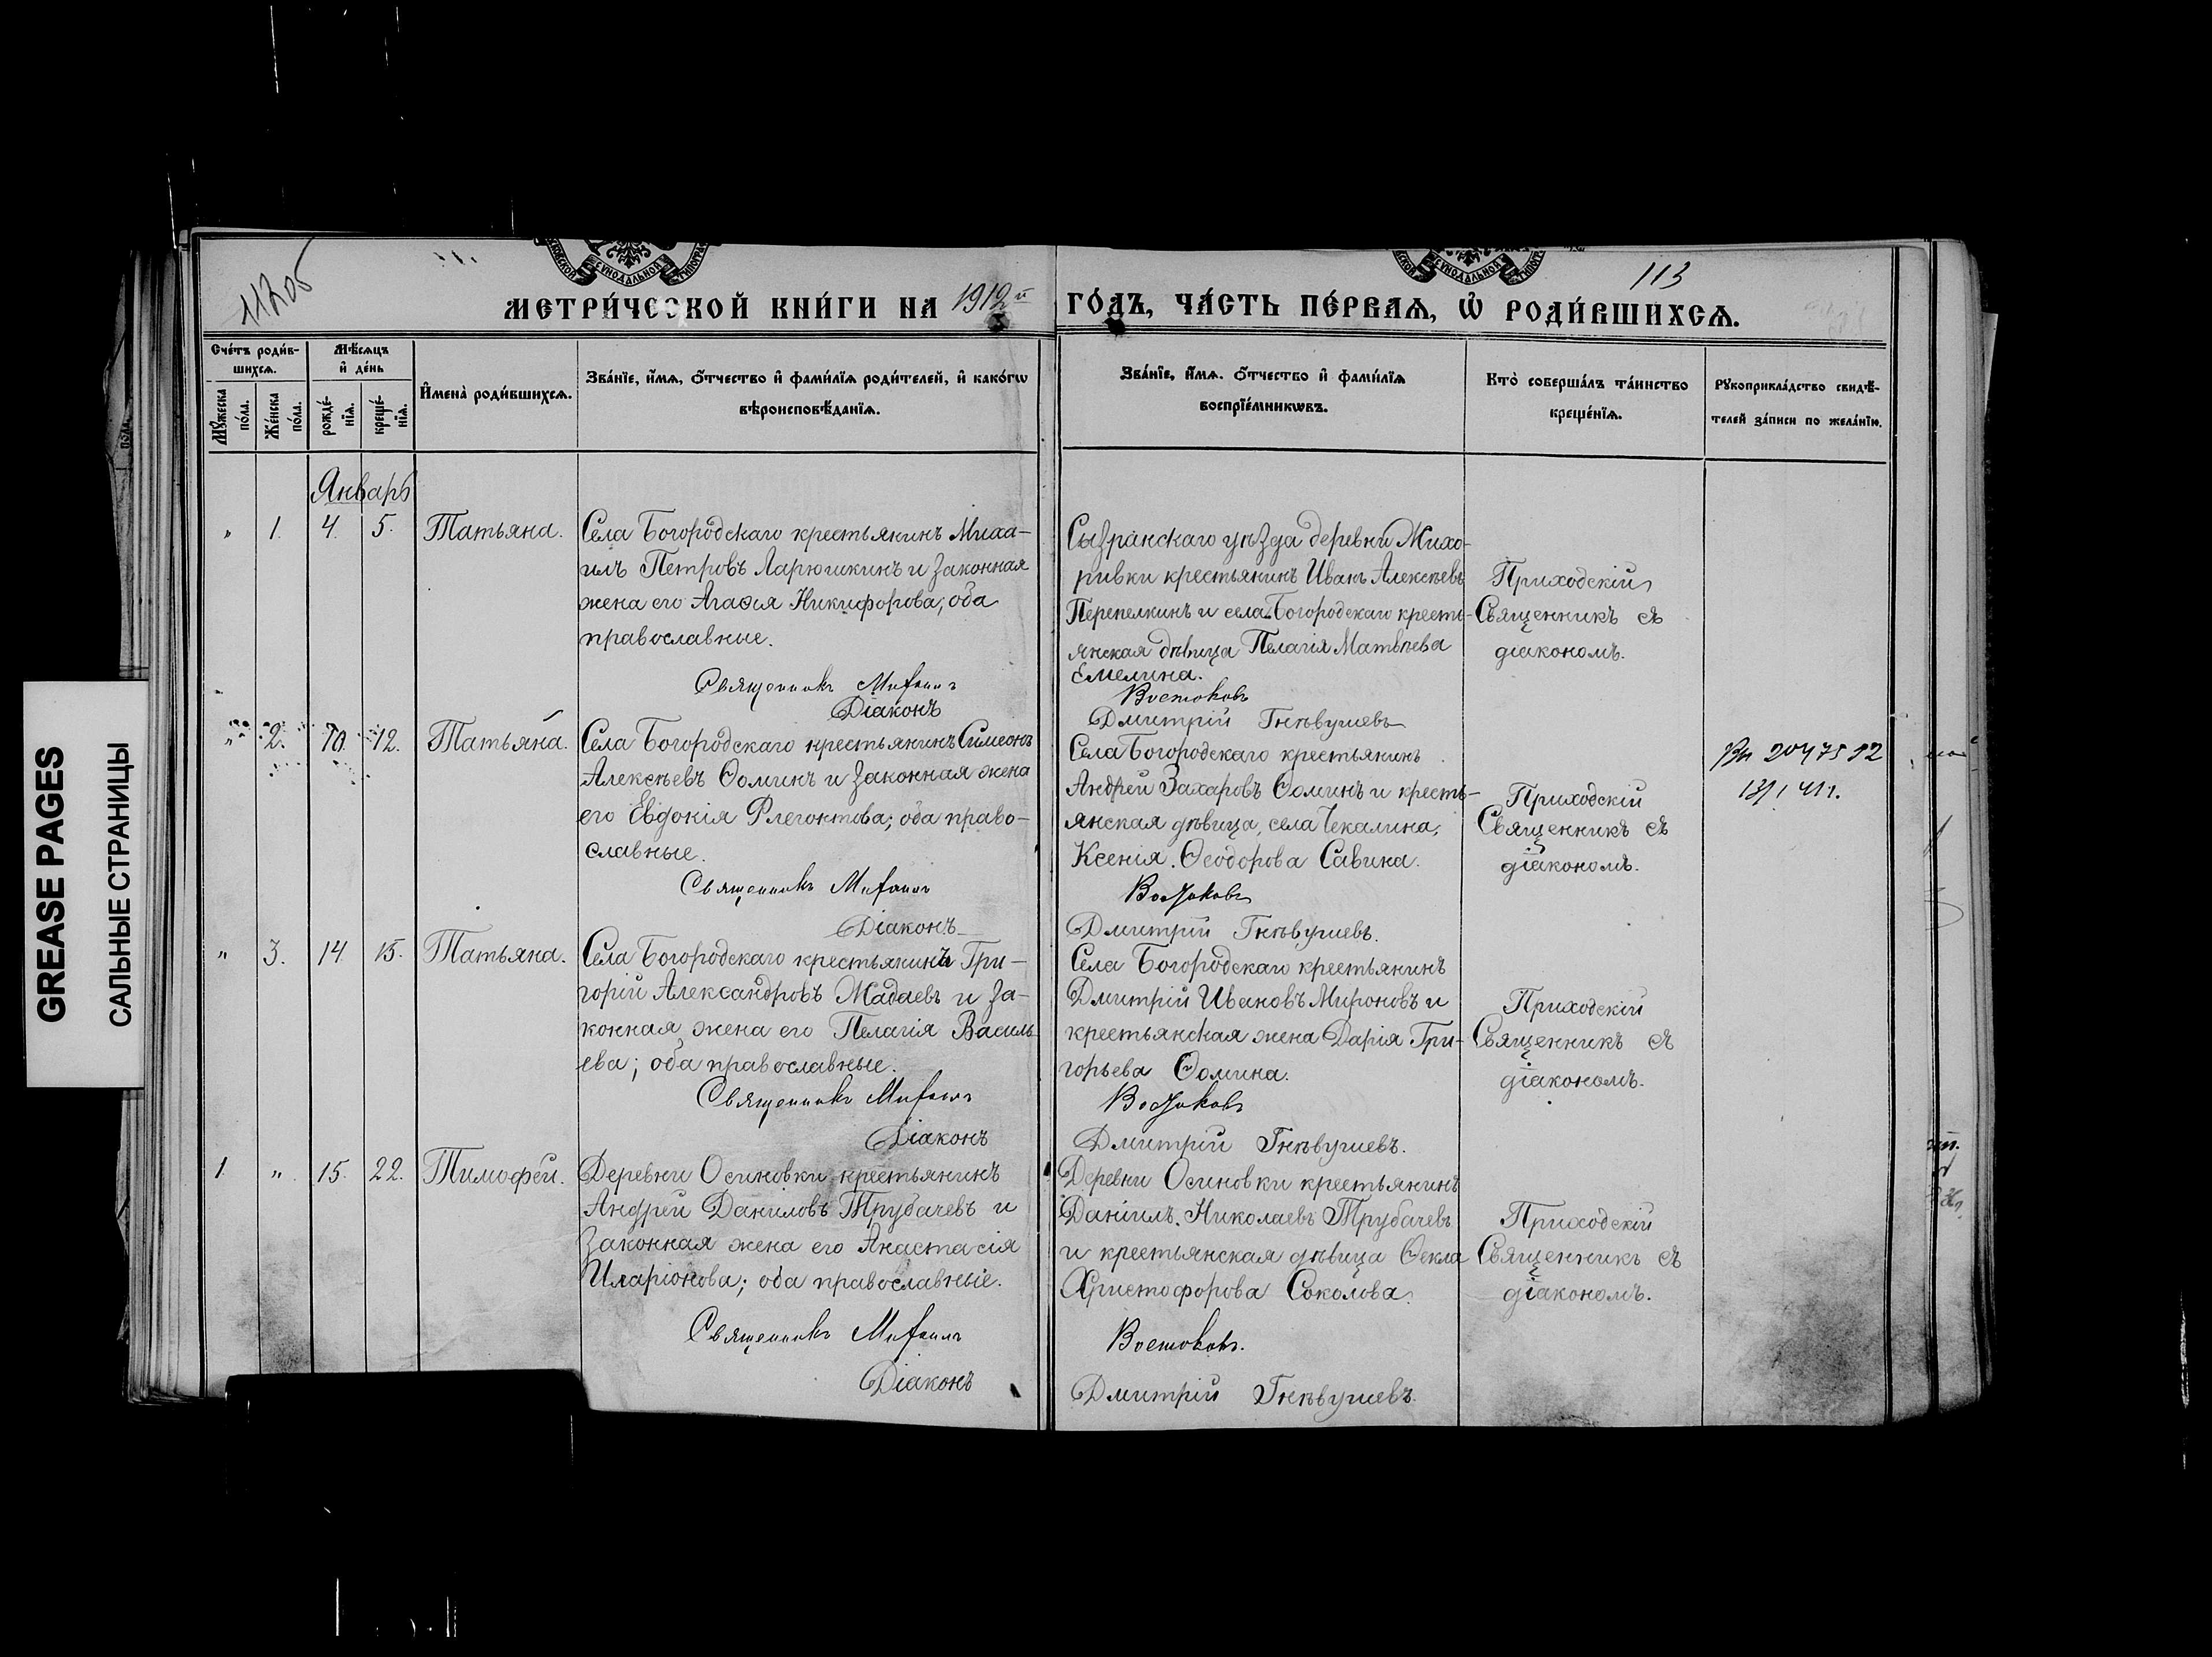 GREASE PAGES
САЛЬНЫЕ СТРАНИЦЫ
11205
113
МЕТРИ́ЧЕСКОЙ КНИ́ГИ НА 1912й ГО́ДЪ, ЧА́СТЬ ПЕ́РВАѦ, Ѽ РОДИ́ВШИХСѦ.
Сче́тъ роди́в-
шихсѧ.
Мꙋ́жеска по́ла.
Же́нска по́ла.
Мѣ́сѧцъ и҆ де́нь
рожде́-нїѧ.
креще́-нїѧ.
И҆мена̀ роди́вшихсѧ.
Зва́нїе, и҆́мѧ, ѻ҆́тчество и҆ фами́лїѧ роди́телей, и҆ како́гѡ
вѣроисповѣ́данїѧ.
Зва́нїе, и҆́мѧ, ѻ҆́тчество и҆ фами́лїѧ
воспрїе́мникѡвъ.
Кто̀ соверша́лъ та́инство
креще́нїѧ.
Рꙋкоприкла́дство свидѣ́-
телей за́писи по жела́нїю.
Январь
" 1. 4. 5. Татьяна.
Села Богородскаго крестьянинъ Миха-
илъ Петровъ Ларюшкинъ и законная
жена его Агаѳія Никифорова; оба
православные.
Священникъ Михаилъ
Діаконъ
Сызранскаго уѣзда деревни Михо-
ривки крестьянинъ Иванъ Алексѣевъ
Перепелкинъ и села Богородскаго кресть-
янская дѣвица Пелагія Матвѣева
Емелина.
Востоковъ
Дмитрій Гнѣвушевъ
Приходскій
Священникъ съ
діакономъ.
" 2. 10. 12. Татьяна.
Села Богородскаго крестьянинъ Симеонъ
Алексѣевъ Ѳоминъ и законная жена
его Евдокія Флегонтова; оба право-
славные.
Священникъ Михаилъ
Діаконъ
Села Богородскаго крестьянинъ
Андрей Захаровъ Ѳоминъ и кресть-
янская дѣвица, села Чекалина,
Ксенія Ѳеодорова Савина.
Востоковъ
Дмитрій Гнѣвушевъ.
Приходскій
Священникъ съ
діакономъ.
" 3. 14 15. Татьяна.
Села Богородскаго крестьянинъ Гри-
горій Александровъ Мадаевъ и за-
конная жена его Пелагія Василь-
ева; оба православные.
Священникъ Михаилъ
Діаконъ
Села Богородскаго крестьянинъ
Дмитрій Ивановъ Мироновъ и
крестьянская жена Дарія Гри-
горьева Ѳомина.
Востоковъ
Дмитрій Гнѣвушевъ.
Приходскій
Священникъ съ
діакономъ.
1 " 15. 22. Тимофей.
Деревни Осиновки крестьянинъ
Андрей Даниловъ Трубачевъ и
законная жена его Анастасія
Иларіонова; оба православные.
Священникъ Михаилъ
Діаконъ
Деревни Осиновки крестьянинъ
Даніилъ Николаевъ Трубачевъ
и крестьянская дѣвица Ѳекла
Христофорова Соколова.
Востоковъ.
Дмитрій Гнѣвушевъ.
Приходскій
Священникъ съ
діакономъ.